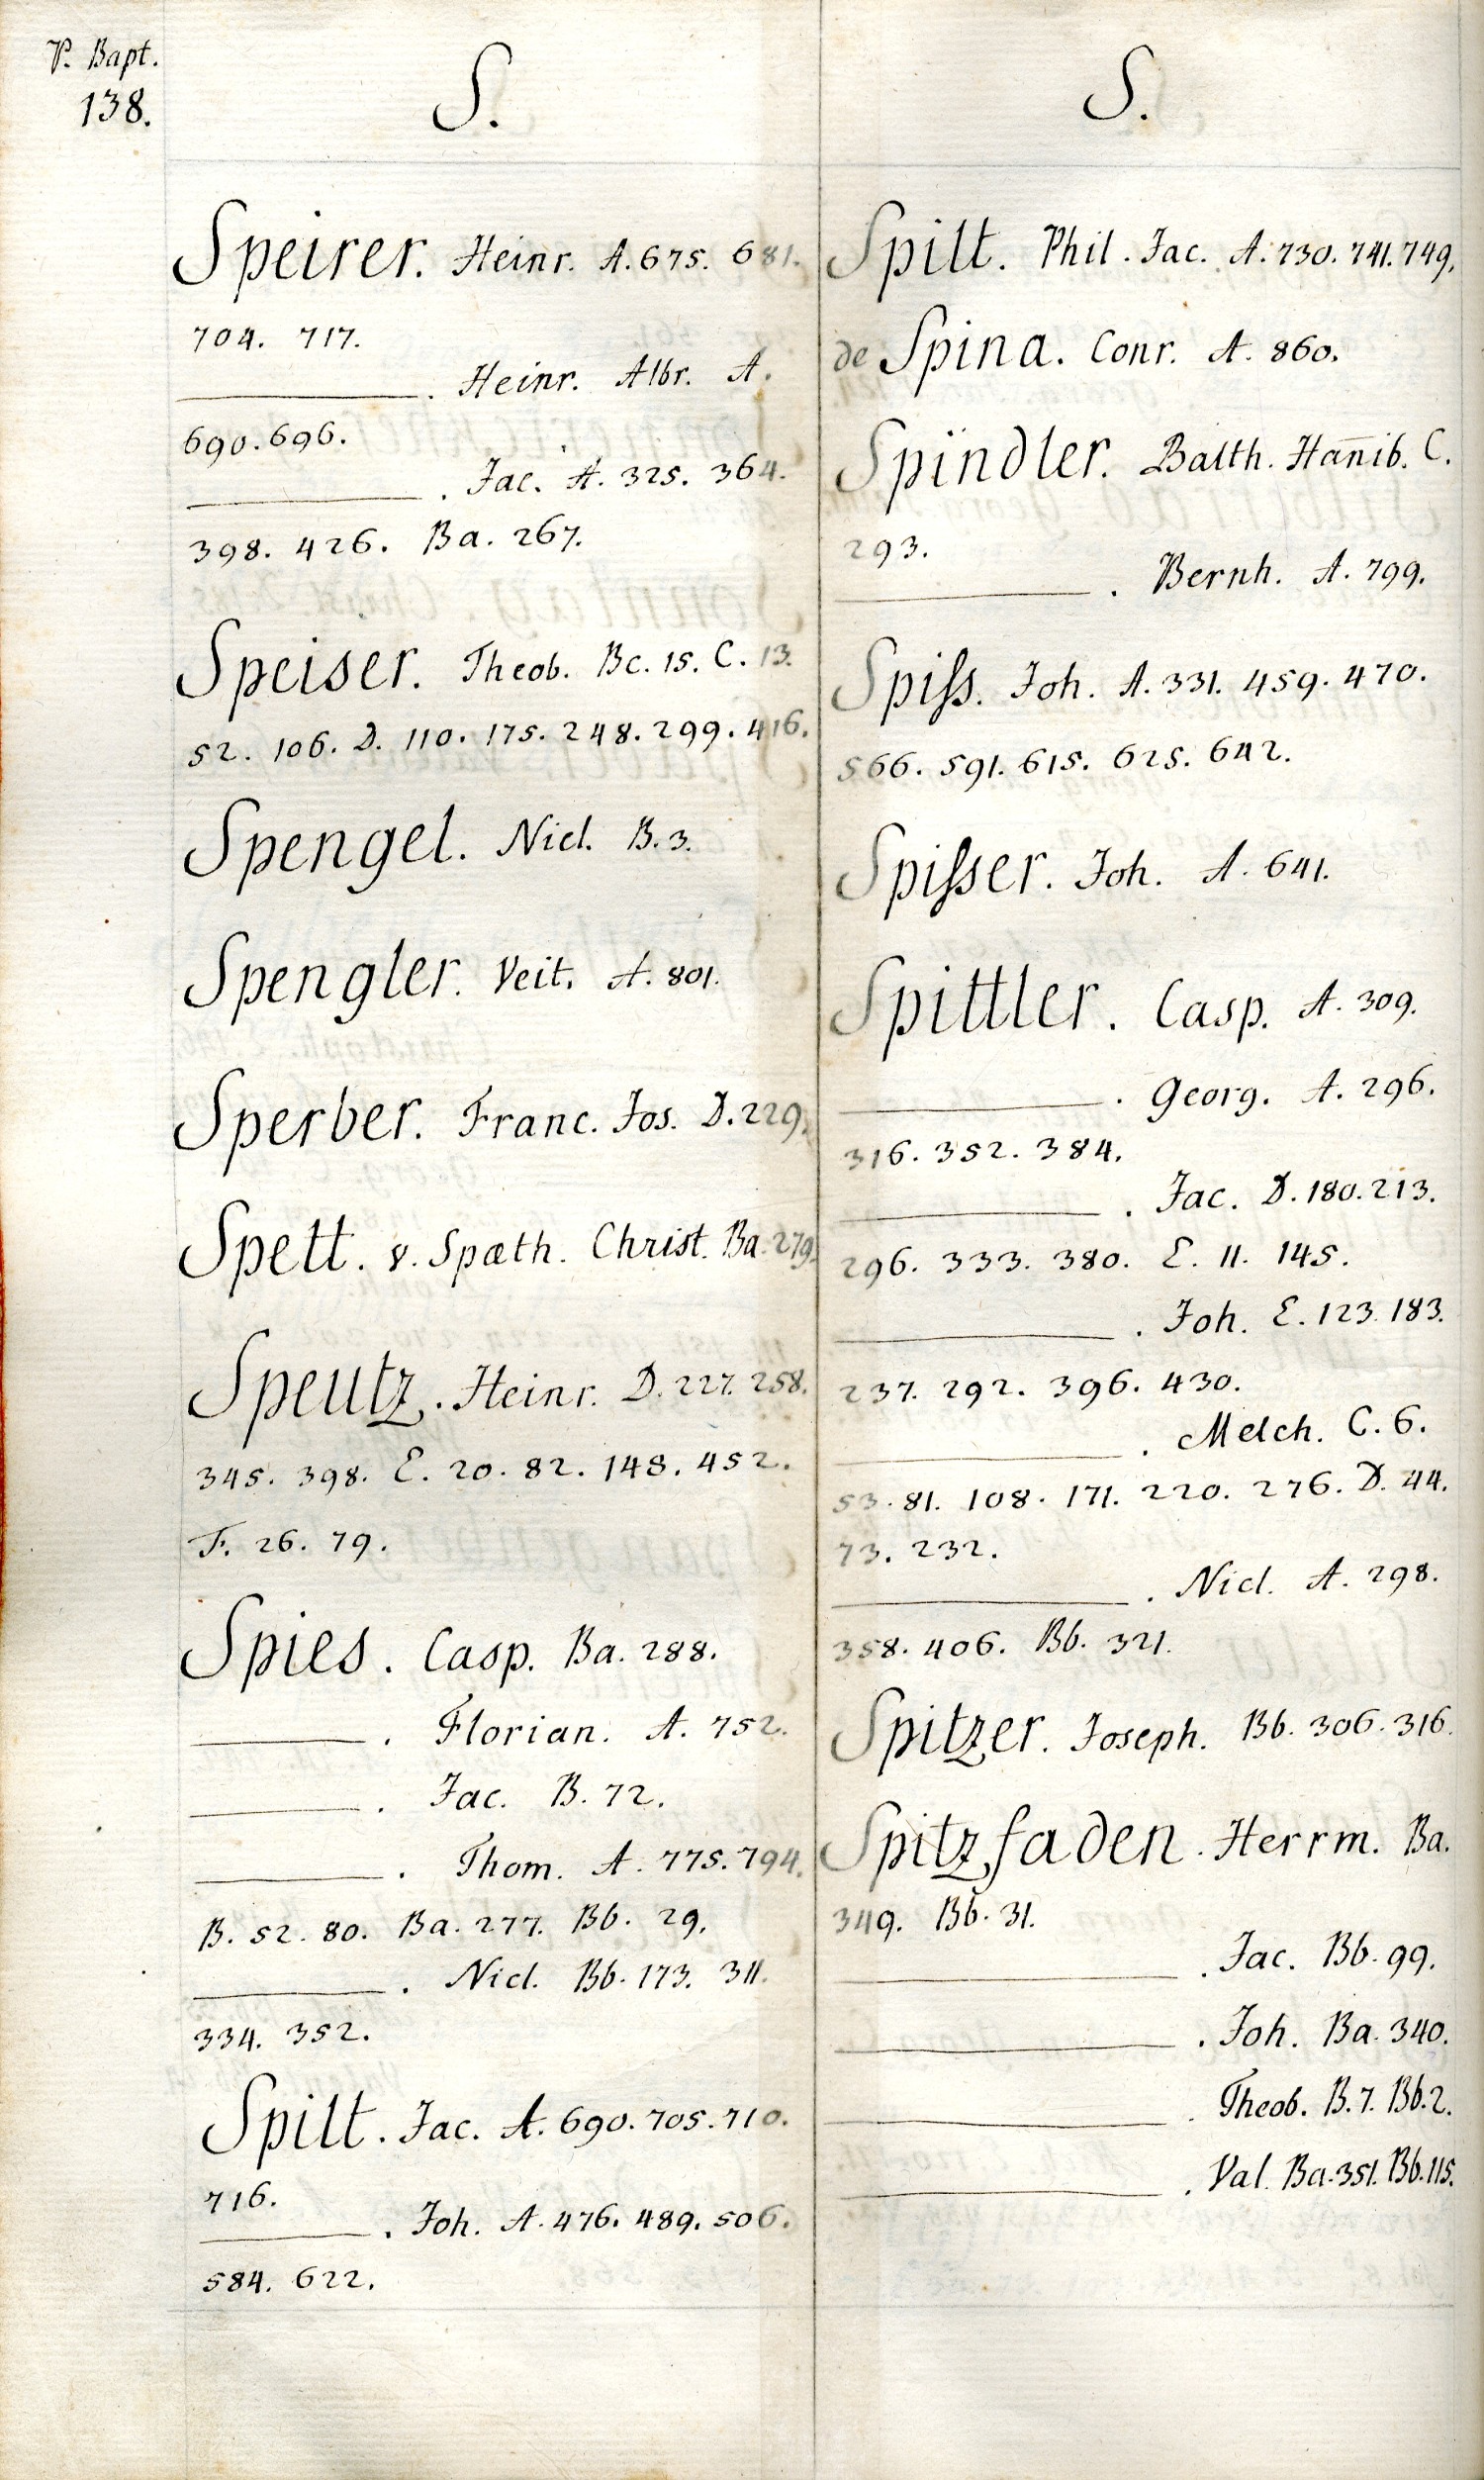 P. Bapt.
138.
S.
Speirer. Heinr. A. 675. 681.
704. 717.
———. Heinr. Albr. A.
690. 696.
———. Jac. A. 325. 364.
398. 426. Ba. 267.
Speiser. Theob. Bc. 15. C. 13.
52. 106. D. 110. 175. 248. 299. 416.
Spengel. Nicl. B. 3.
Spengler. Veit. A. 801.
Sperber. Franc. Jos. D. 229.
Spett. v. Spæth. Christ. Ba. 279.
Speutz. Heinr. D. 227. 258.
345. 398. E. 20. 82. 148. 452.
F. 26. 79.
Spies. Casp. Ba. 288.
———. Florian. A. 752.
———. Jac. B. 72.
———. Thom. A. 775. 794.
B. 52. 80. Ba. 277. Bb. 29.
———. Nicl. Bb. 173. 311.
334. 352.
Spilt. Jac. A. 690. 705. 710.
716.
———. Joh. A. 476. 489. 506.
584. 622.
S.
Spilt. Phil. Jac. A. 730. 741. 749.
de Spina. Conr. A. 860.
Spindler. Balth. Han̄ib. C.
293.
———. Bernh. A. 799.
Spiſs. Joh. A. 331. 459. 470.
566. 591. 615. 625. 642.
Spiſser. Joh. A. 641.
Spittler. Casp. A. 309.
———. Georg. A. 296.
316. 352. 384.
———. Jac. D. 180. 213.
296. 333. 380. E. 11. 145.
———. Joh. E. 123. 183.
237. 292. 396. 430.
———. Melch. C. 6.
53. 81. 108. 171. 220. 276. D. 44.
73. 232.
———. Nicl. A. 298.
358. 406. Bb. 321.
Spitzer. Joseph. Bb. 306. 316.
Spitzfaden. Herrm. Ba.
349. Bb. 31.
———. Jac. Bb. 99.
———. Joh. Ba. 340.
———. Theob. B. 7. Bb. 2.
———. Val. Ba. 351. Bb. 115.